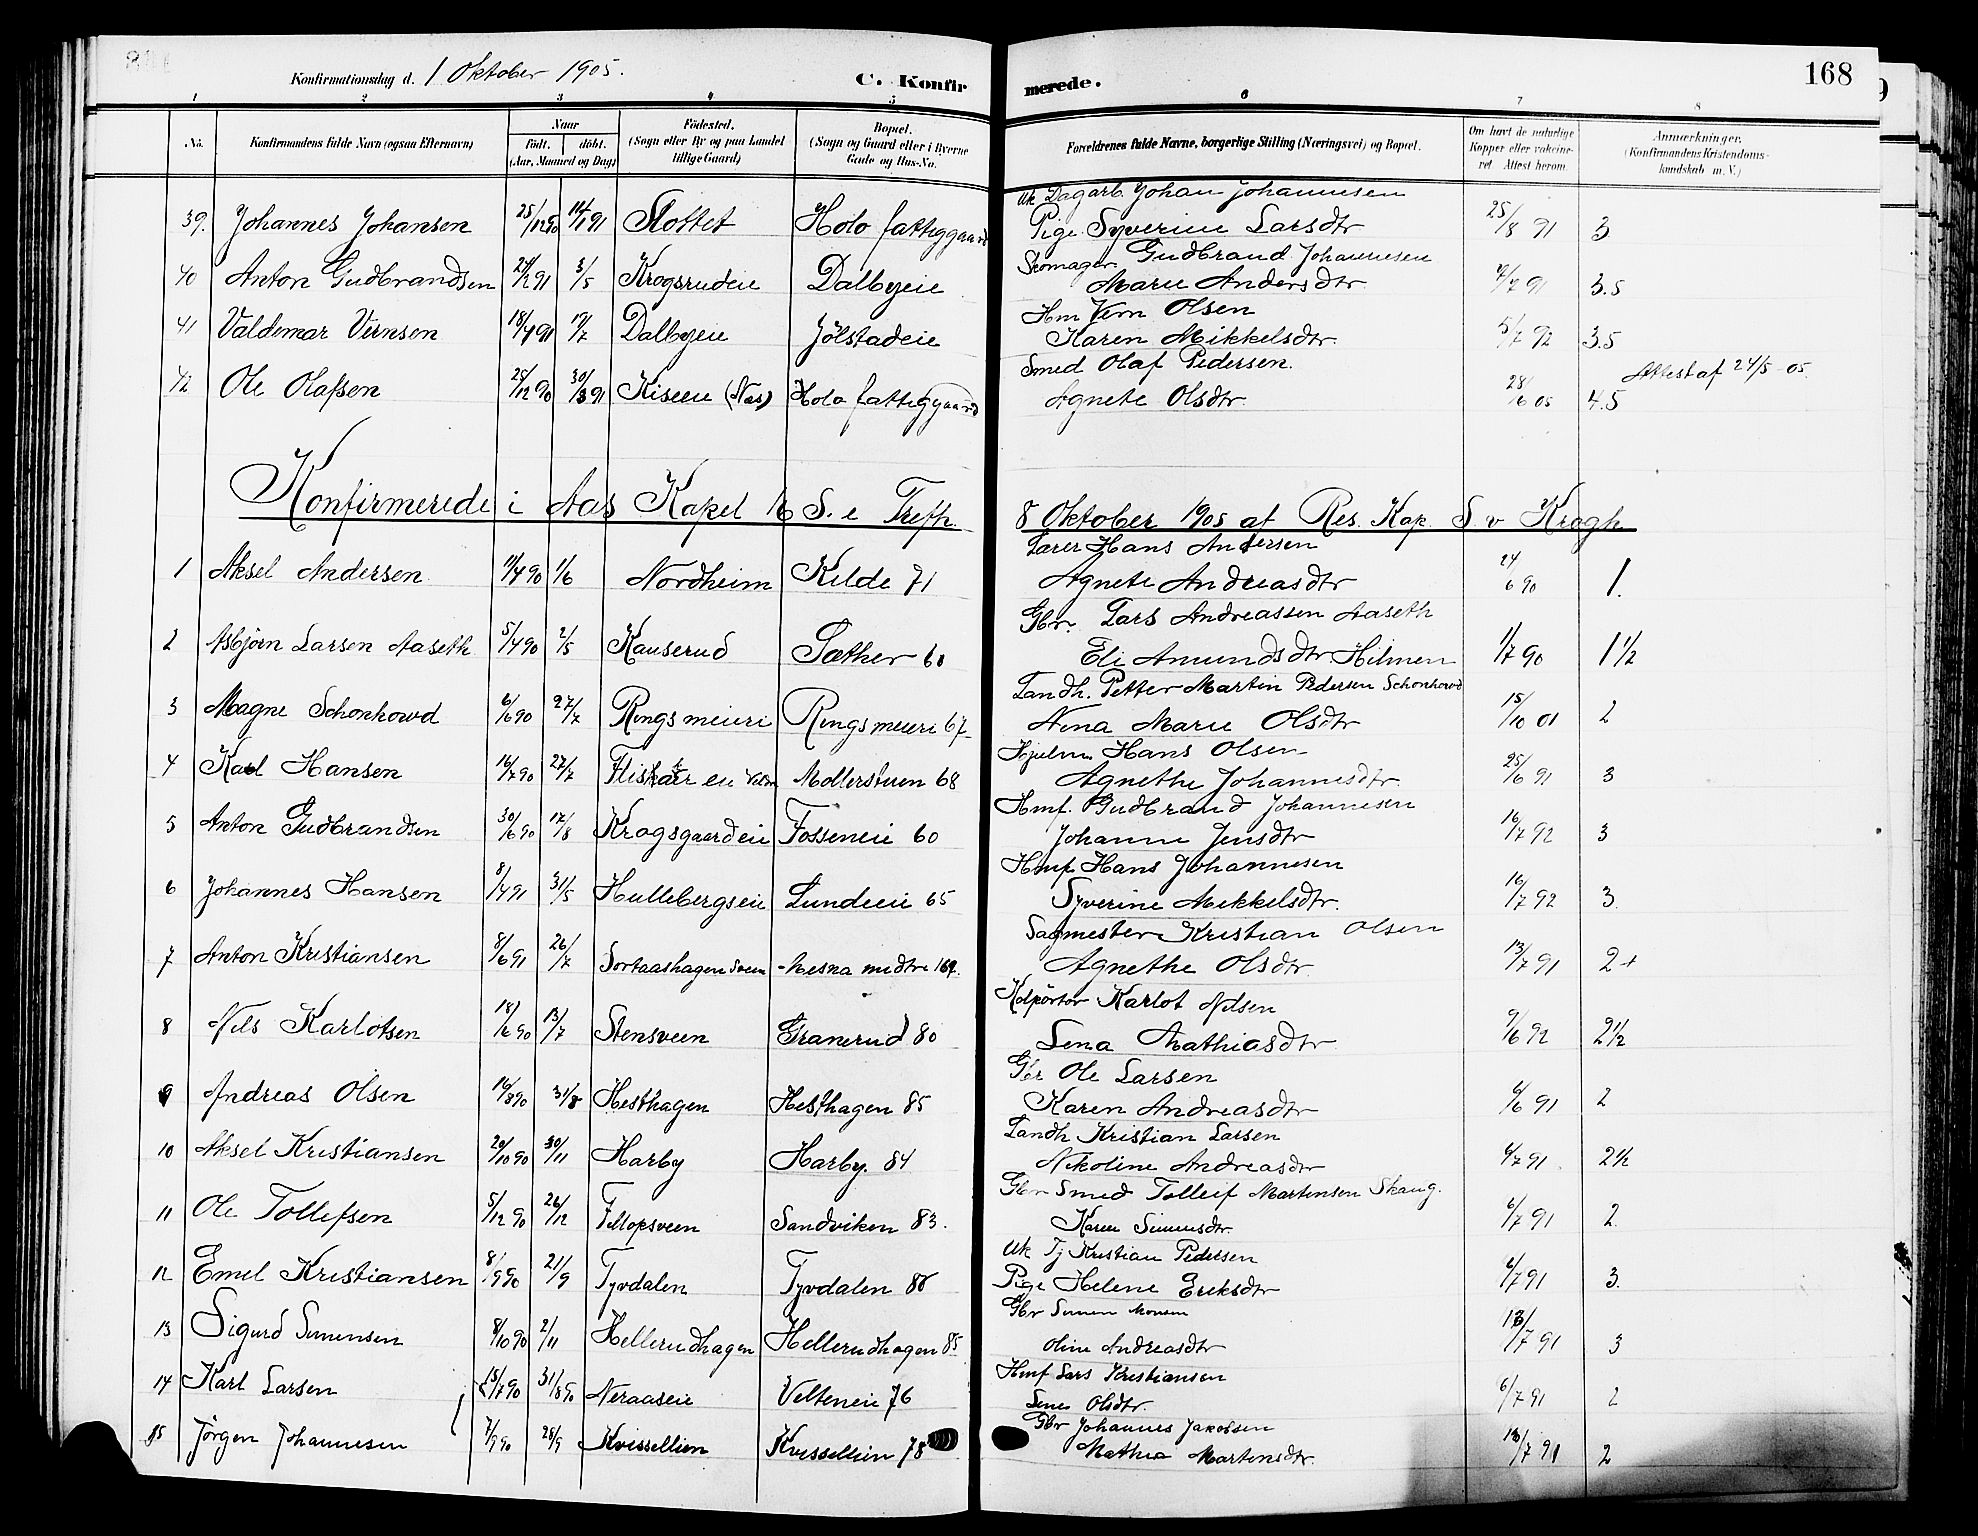 Konfirmationsdag d. 1 Oktober 1905.
C. Konfirmerede.
168
1 2 3 4 5 6 7 8
No. Konfirmandens fulde Navn (ogsaa Efternavn) Naar Födt. döbt. (Aar, Maaned og Dag) Födested. (Sogn eller By og paa Landet tillige Gaard) Bopæl. (Sogn og Gaard eller i Byerne Gade og Hus-No. Forældrenes fulde Navne, borgerlige Stilling (Næringsvei) og Bopæl. Om havt de naturlige Kopper eller vakcineret. Attest herom. Anmærkninger. (Konfirmandens Kristendomskundskab m. V.)
Uk Dagarb. Johan Johannesen
39. Johannes Johansen 25/12 90 11/1 91 Slottet Holo fattiggaard Pige Syverine Larsdtr 25/8 91 3
Skomager Gudbrand Johannesen
40 Anton Gudbrandsen 24/2 91 3/5 Krogsrudeie Dalbyeie Marie Andersdtr 7/7 91 3.5
Hm Vern Olsen
41 Valdemar Vernsen 18/4 91 19/7 Dalbyeie Jölstadeie Karen Mikkelsdtr. 5/7 92 3.5
Smed Olaf Pedersen.
42 Ole Olafsen 25/12 90 30/3 91 Kiseeie (Næs) Holo fattiggaard Agnete Olsdtr. 28/6 05 4.5 Attest af 24/5-05.
Konfirmerede i Aas Kapel 16 S. e Trefh. 8 Oktober 1905 af Res. Kap. S. v Krogh
Lærer Hans Andersen
1 Aksel Andersen 11/4 90 1/6 Nordheim Kilde 71 Agnete Andreasdtr 24/6 90 1.
Gbr. Lars Andreassen Aaseth
2 Asbjörn Larsen Aaseth 5/4 90 2/5 Kauserud Sæther 60 Eli Amundsdtr Hilmen 1/7 90 1½
Landh. Petter Martin Pedersen Schonhowd
3 Magne Schonhowd 6/6 90 27/7 Ringsmeieri Ringsmeieri 67 Nina Marie Olsdtr 15/10 01 2
Hjulm. Hans Olsen
4 Karl Hansen 16/7 90 27/7 Möllerstuen 68 Agnethe Johannesdtr. 25/6 91 3
Hmf. Gudbrand Johannesen
5 Anton Gudbrandsen 30/6 90 17/8 Krogsgaardeie Fosseneie 60 Johanne Jensdtr 16/7 92 3
Hmf. Hans Johannesen
6 Johannes Hansen 8/4 91 31/5 Hullebergseie Lundeeie 65 Syverine Mikkelsdtr. 16/7 92 3.
Sagmester Kristian Olsen
7 Anton Kristiansen 8/6 91 26/7 Sortaashagen Sveen Mesna midtre 169. Agnethe Olsdtr. 13/7 91 2+
Kolpörtör Karlot Nilsen
8 Nils Karlotsen 18/6 90 13/7 Stensveen Granerud 80 Lena Mathiasdtr 9/6 92 2½
Gbr Ole Larsen
9 Andreas Olsen 16/8 90 31/8 Hesthagen Hesthagen 85 Karen Andreasdtr 6/6 91 2
Landh Kristian Larsen
10 Aksel Kristiansen 20/10 90 30/11 Harby Harby. 84 Nikoline Andreasdtr 6/7 91. 2½
Gbr Smed Tolleif Martinsen Skaug.
11 Ole Tollefsen 5/12 90 26/12 Fillopsveen Sandviken 83. Karen Simensdtr. 6/7 91 2.
Uk Tj Kristian Pedersen
12 Emil Kristiansen 8/9 90 21/9 Tyvdalen Tyvdalen 86 Pige Helene Eriksdtr 6/7 91 3.
Gbr Simen Monsen
13 Sigurd Simensen 8/10 90 2/11 Hellerudhagen Hellerudhagen 85 Oline Andreasdtr 13/7 91 3
Hmf Lars Kristiansen
14 Karl Larsen 15/7 90 31/8 90 Neraaseie Velteneie 76 Lines Olsdtr. 6/7 91 2
Gbr Johannes Jakobsen
15 Jörgen Johannesen 7/9 90 28/9 Kvissellien Kvissellien 78 Mathea Martinsdtr. 13/7 91 2